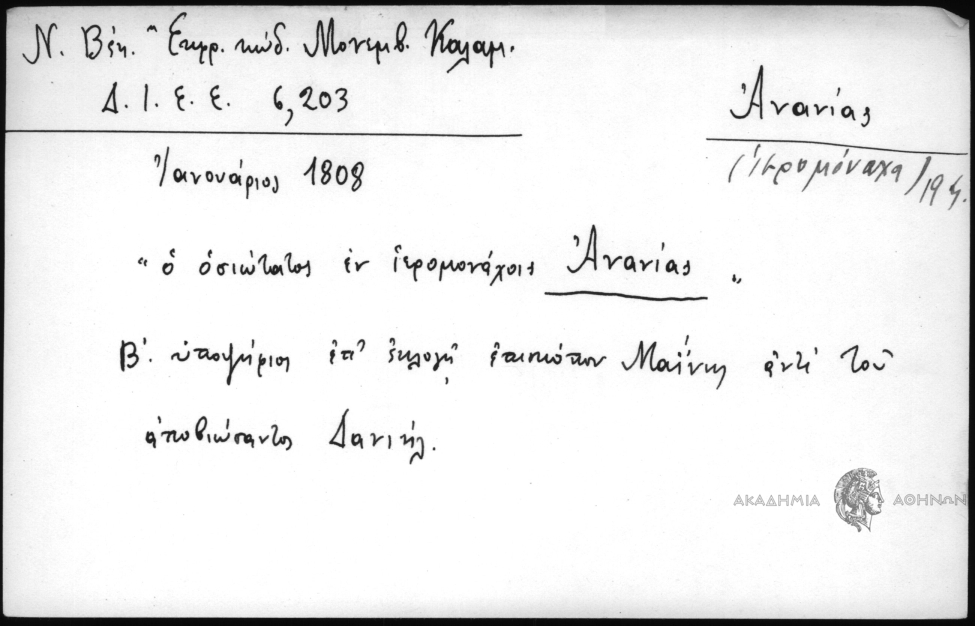 Ν. Βέη. "Εκφρ. κώδ. Μονεμβ. Καλαμ.
Δ. Ι. Ε. Ε. 6,203
Ἀνανίας
(ἱερομόναχος) 19 ς.
Ἰανουάριος 1808
" ὁ ὁσιώτατος ἐν ἱερομονάχοις Ἀνανίας "
Β'. ὑποψήριος ἐπ' ἐκλογῇ ἐπισκόπου Μαΐνης ἀντὶ τοῦ
ἀποβιώσαντος Δανιήλ.
ΑΚΑΔΗΜΙΑ ΑΘΗΝΩΝ